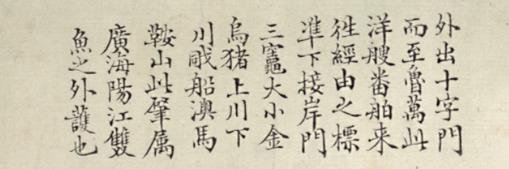 外出十字門
而至魯萬此
洋艘番舶来
徃經由之標
凖下接岸門
三竈大小金
烏猪上川下
川戙船澳馬
鞍山此肇属
廣海陽江雙
魚之外護也